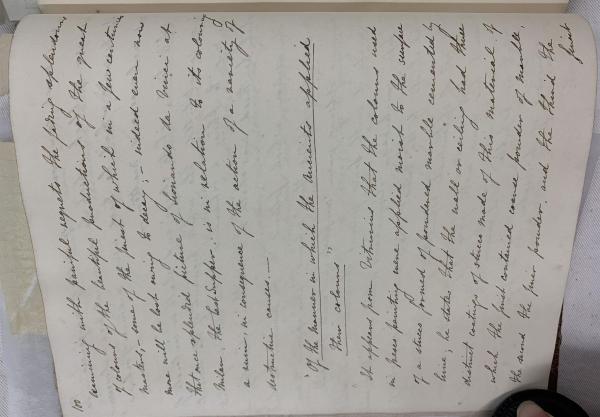 10
remaining with painful regrets the fading splendour
of colours of the beautiful productions of the great
masters, some of the finest of which in a few centuries
more will be lost owing to decay; - indeed even now
that once splendid picture of Leonardo da Vinci at
Milan the last supper, is in relation to its coloring
a ruin, in consequence of the action of a variety of
destructive causes. -
"Of the manner in which the Ancients applied
their colours"
It appears from Vitruvius that the colours used
in fresco painting were applied moist to the surface
of a stucco formed of powdered marble cemented by
lime; he states that the wall or ceiling had three
distinct coatings of stucco made of this material of
which the first contained coarse powder of marble,
the second the finer powder, and the third the
finest